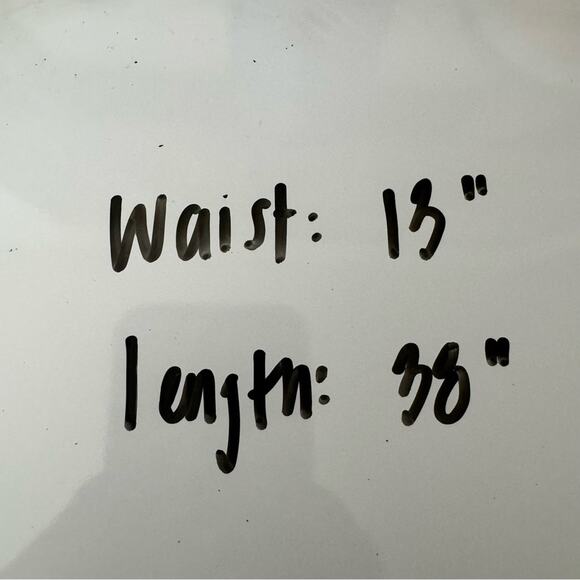 Waist: 13"
length: 38"